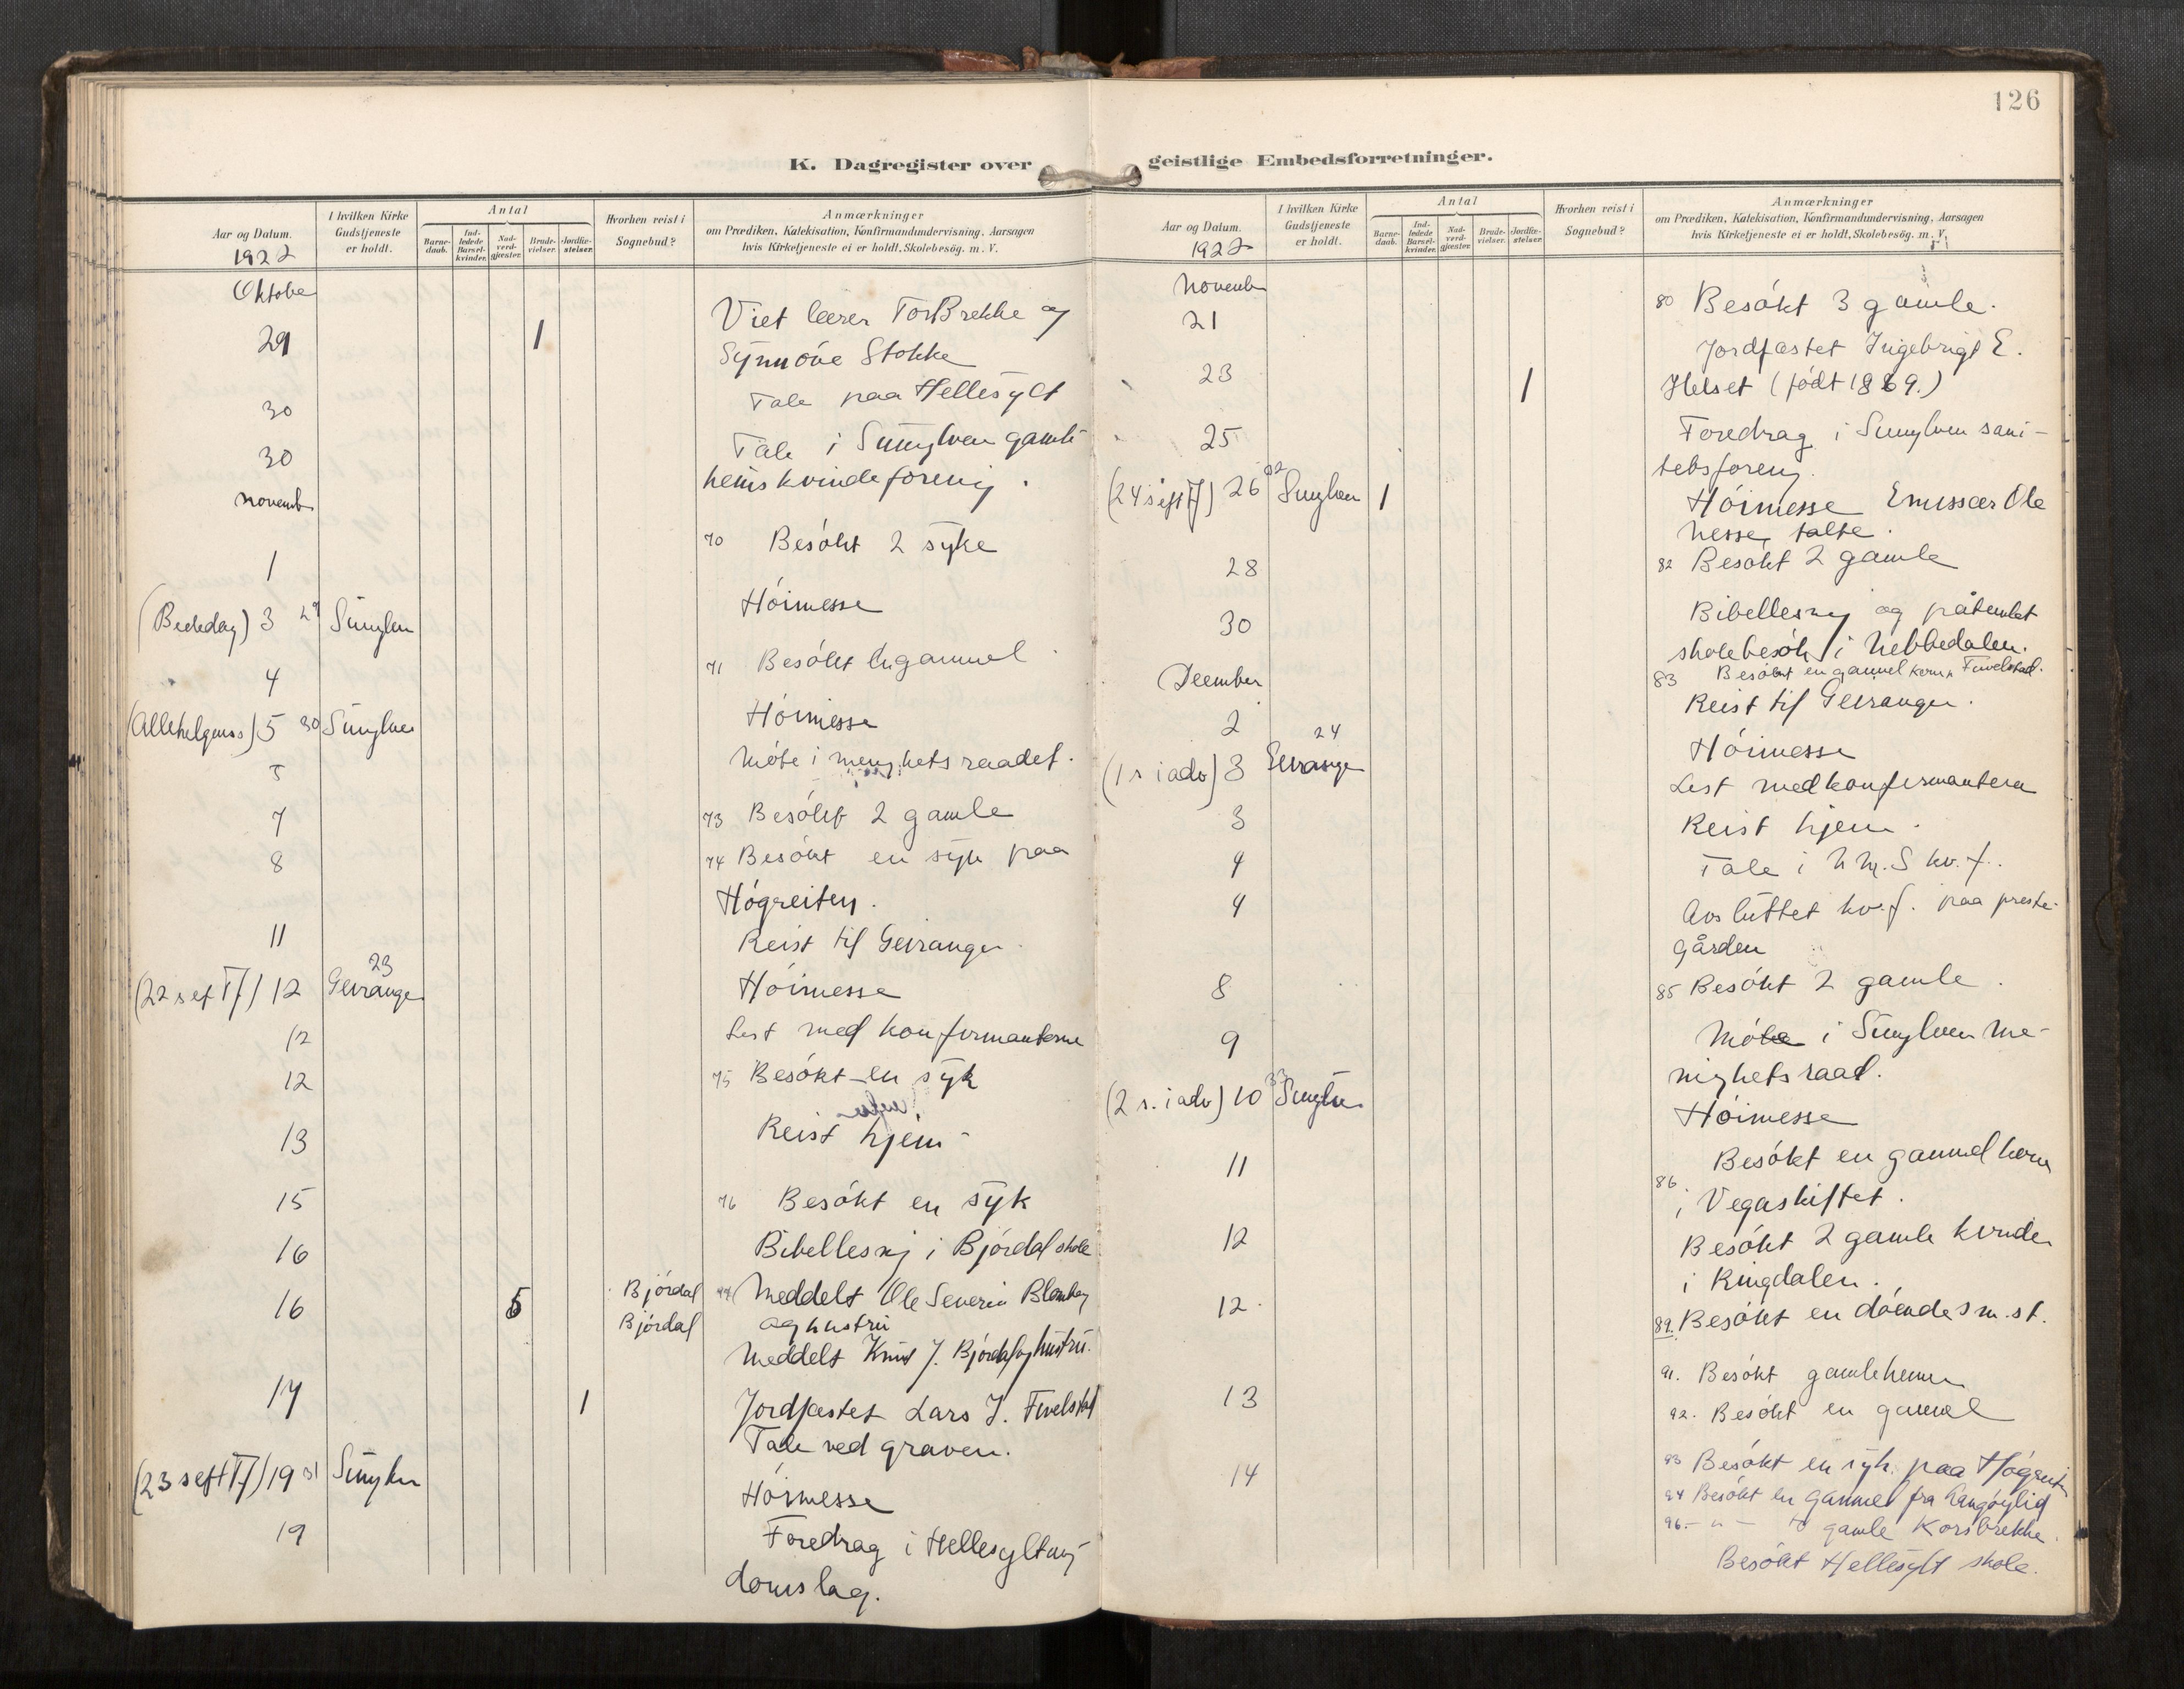 126
K. Dagregister over geistlige Embedsforretninger.
Aar og Datum.
1922
I hvilken Kirke Gudstjeneste er holdt.
Antal
Barne-daab.
Ind-ledede Barsel-kvinder.
Nad-verd-gjæster.
Brude-vielser.
Jordfæ-stelser.
Hvorhen reist i Sognebud?
Anmærkninger
om Prædiken, Katekisation, Konfirmandundervisning, Aarsagen
hvis Kirketjeneste ei er holdt, Skolebesög. m. V.
Oktober
29 1 Viet lærer Tor Brekke og
Synnöve Stokke
30 Tale paa Hellesylt
30 Tale i Sunylven gamle
heims kvindeforening.
Novemb
1 70 Besökt 2 syke
(Bededag) 3 29 Sunylven Höimesse
4 71 Besökt en gammel
(Allehelgens) 5 30 Sunylven Höimesse
5 Möte i menighetsraadet.
7 73 Besökt 2 gamle
8 74 Besökt en syk paa
Högreiten.
11 Reist til Geiranger.
(22 s eft Tf) 12 23 Geiranger Höimesse
12 Lest med konfirmanterne
12 75 Besökt en syk
13 Reist hjem
15 76 Besökt en syk
16 Bibellesning i Björdal skole
16 5 Björdal Meddelt Ole Severin
Björdal og hustru
Meddelt Knut J. Björdal og hustru.
17 1 Jordfæstet Lars J. Fivelstad
Tale ved graven.
(23 s eft Tf) 19 31 Sunylven Höimesse
19 Foredrag i Hellesylt ung
domslag.
Aar og Datum.
1922
I hvilken Kirke Gudstjeneste er holdt.
Antal
Barne-daab.
Ind-ledede Barsel-kvinder.
Nad-verd-gjæster.
Brude-vielser.
Jordfæ-stelser.
Hvorhen reist i Sognebud?
Anmærkninger
om Prædiken, Katekisation, Konfirmandundervisning, Aarsagen
hvis Kirketjeneste ei er holdt, Skolebesög. m. V.
Novemb
21 80 Besökt 3 gamle.
23 1 Jordfæstet Ingebrigt E.
Helset (födt 1869.)
25 Foredrag i Sunylven sani-
tetsforening.
(24 s eft Tf) 26 32 Sunylven 1 Höimesse Emissær Ole
Nesse talte.
28 82 Besökt 2 gamle
30 Bibellesning og påtenkt
skolebesök i Nebbedalen.
83 Besökt en gammel kone Fivelstad.
December
2 Reist til Geiranger.
(1 s. i adv) 3 24 Geiranger Höimesse
3 Lest med konfirmantene
4 Reist hjem.
4 Tale i N. M. S kv. f.
Avsluttet kv. f. paa preste-
gården
8 85 Besökt 2 gamle.
9 Möte i Sunylven me-
nighetsraad.
(2 s. i adv) 10 33 Sunylven Höimesse
11 86 Besökt en gammel kone
i Vegaskiftet.
12 Besökt 2 gamle kvinder
i Ringdalen.
12. 89. Besökt en döende sm. st.
13 91. Besökt gamlehemmen
92. Besökt en gammel
14 93 Besökt en syk paa Högreiten
94 Besökt en gammel fra Langöylid
96. – " – to gamle Korsbrekke.
Besökt Hellesylt skole.